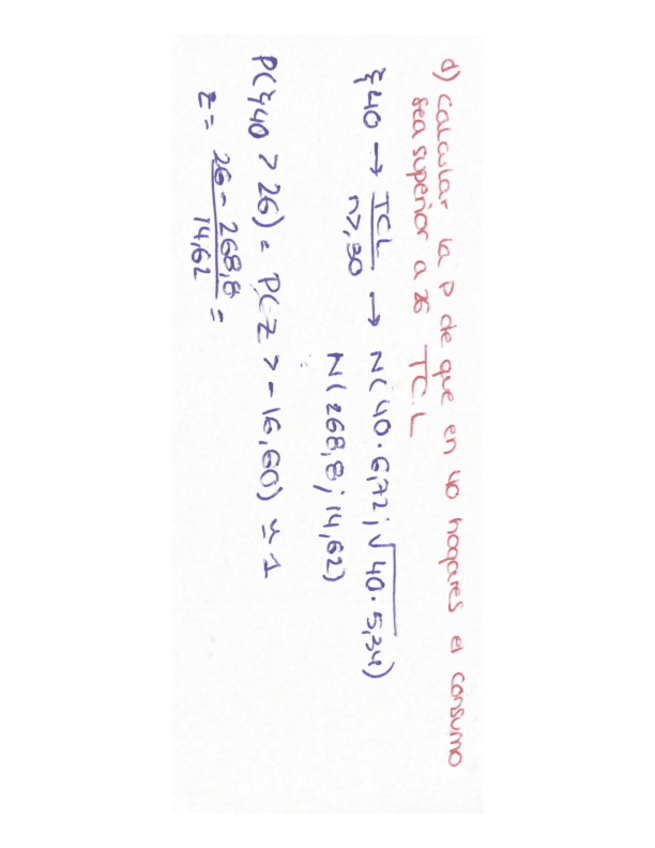 d) Calcular la p de que en 40 hogares el consumo
sea superior a 26 TCL
ξ40 → TCL / n≥30 → N(40·6,72; √40·5,34)
N(268,8; 14,62)
P(ξ40 > 26) = P(z > -16,60) ≃ 1
z = 26 - 268,8 / 14,62 =